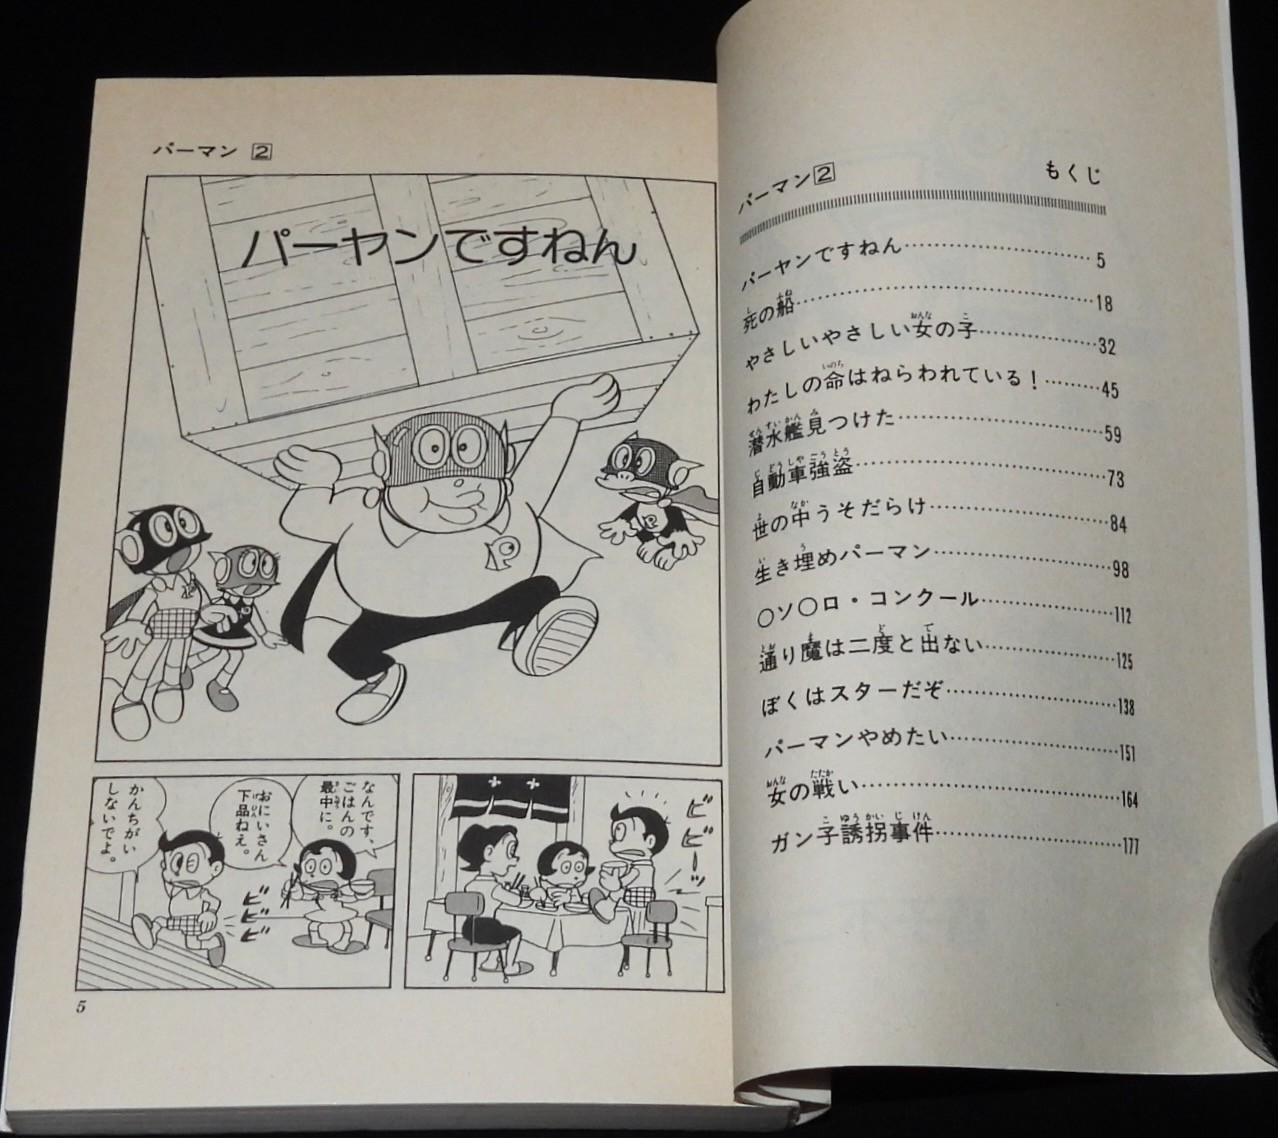 パーマン2
もくじ
パーヤンですねん……5
死の船……18
やさしいやさしい女の子……32
わたしの命はねらわれている！……45
潜水艦見つけた……59
自動車強盗……73
世の中うそだらけ……84
生き埋めパーマン……98
○ソ○ロ・コンクール……112
通り魔は二度と出ない……125
ぼくはスターだぞ……138
パーマンやめたい……151
女の戦い……164
ガン子誘拐事件……177
パーマン 2
パーヤンですねん
ビビーッ
なんです、
ごはんの
最中に。
おにいさん
下品ねえ。
ビビビ
かんちがい
しないでよ。
5